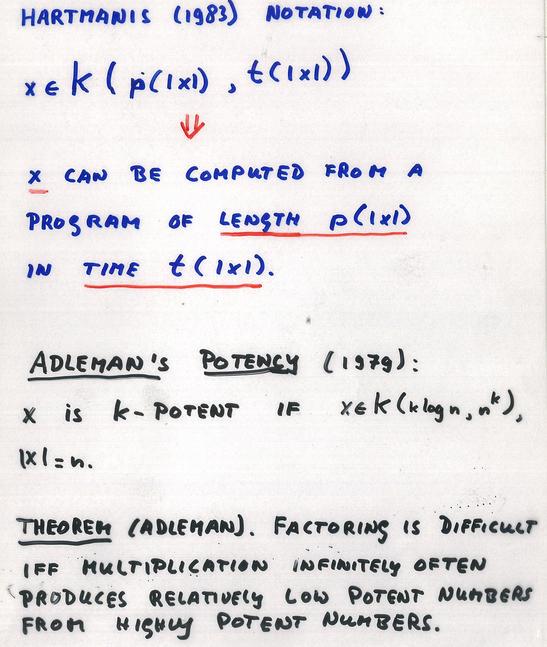 HARTMANIS (1983) NOTATION:
x ∈ K ( p(|x|) , t(|x|) )
⇓
x CAN BE COMPUTED FROM A
PROGRAM OF LENGTH p(|x|)
IN TIME t(|x|).
ADLEMAN'S POTENCY (1979):
x is k-POTENT IF x∈K(k log n, n^k),
|x| = n.
THEOREM (ADLEMAN). FACTORING IS DIFFICULT
IFF MULTIPLICATION INFINITELY OFTEN
PRODUCES RELATIVELY LOW POTENT NUMBERS
FROM HIGHLY POTENT NUMBERS.